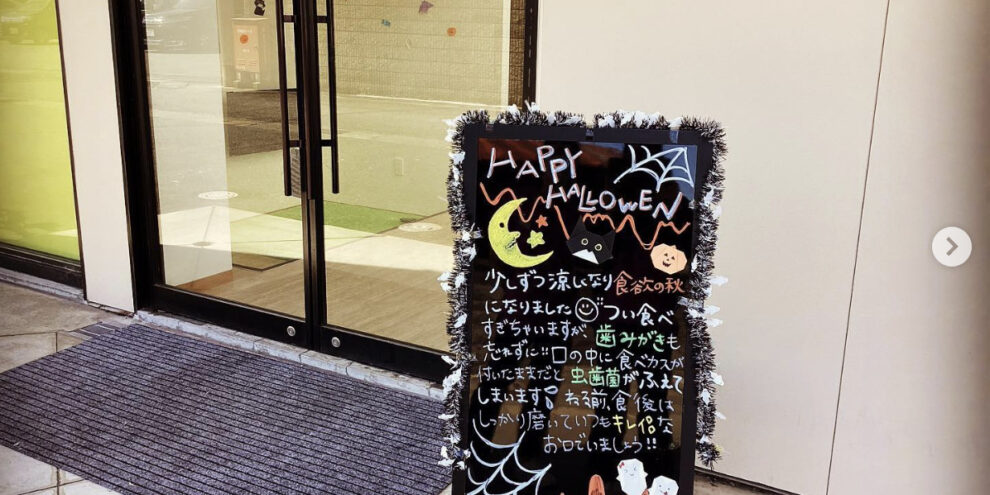 HAPPY
HALLOWEN
少しずつ涼しくなり食欲の秋
になりました つい食べ
すぎちゃいますが 歯みがきも
忘れずに!! 口の中に食べカスが
付いたままだと虫歯菌がふえて
しまいます ねる前、食後は
しっかり磨いていつもキレイな
お口でいましょう!!